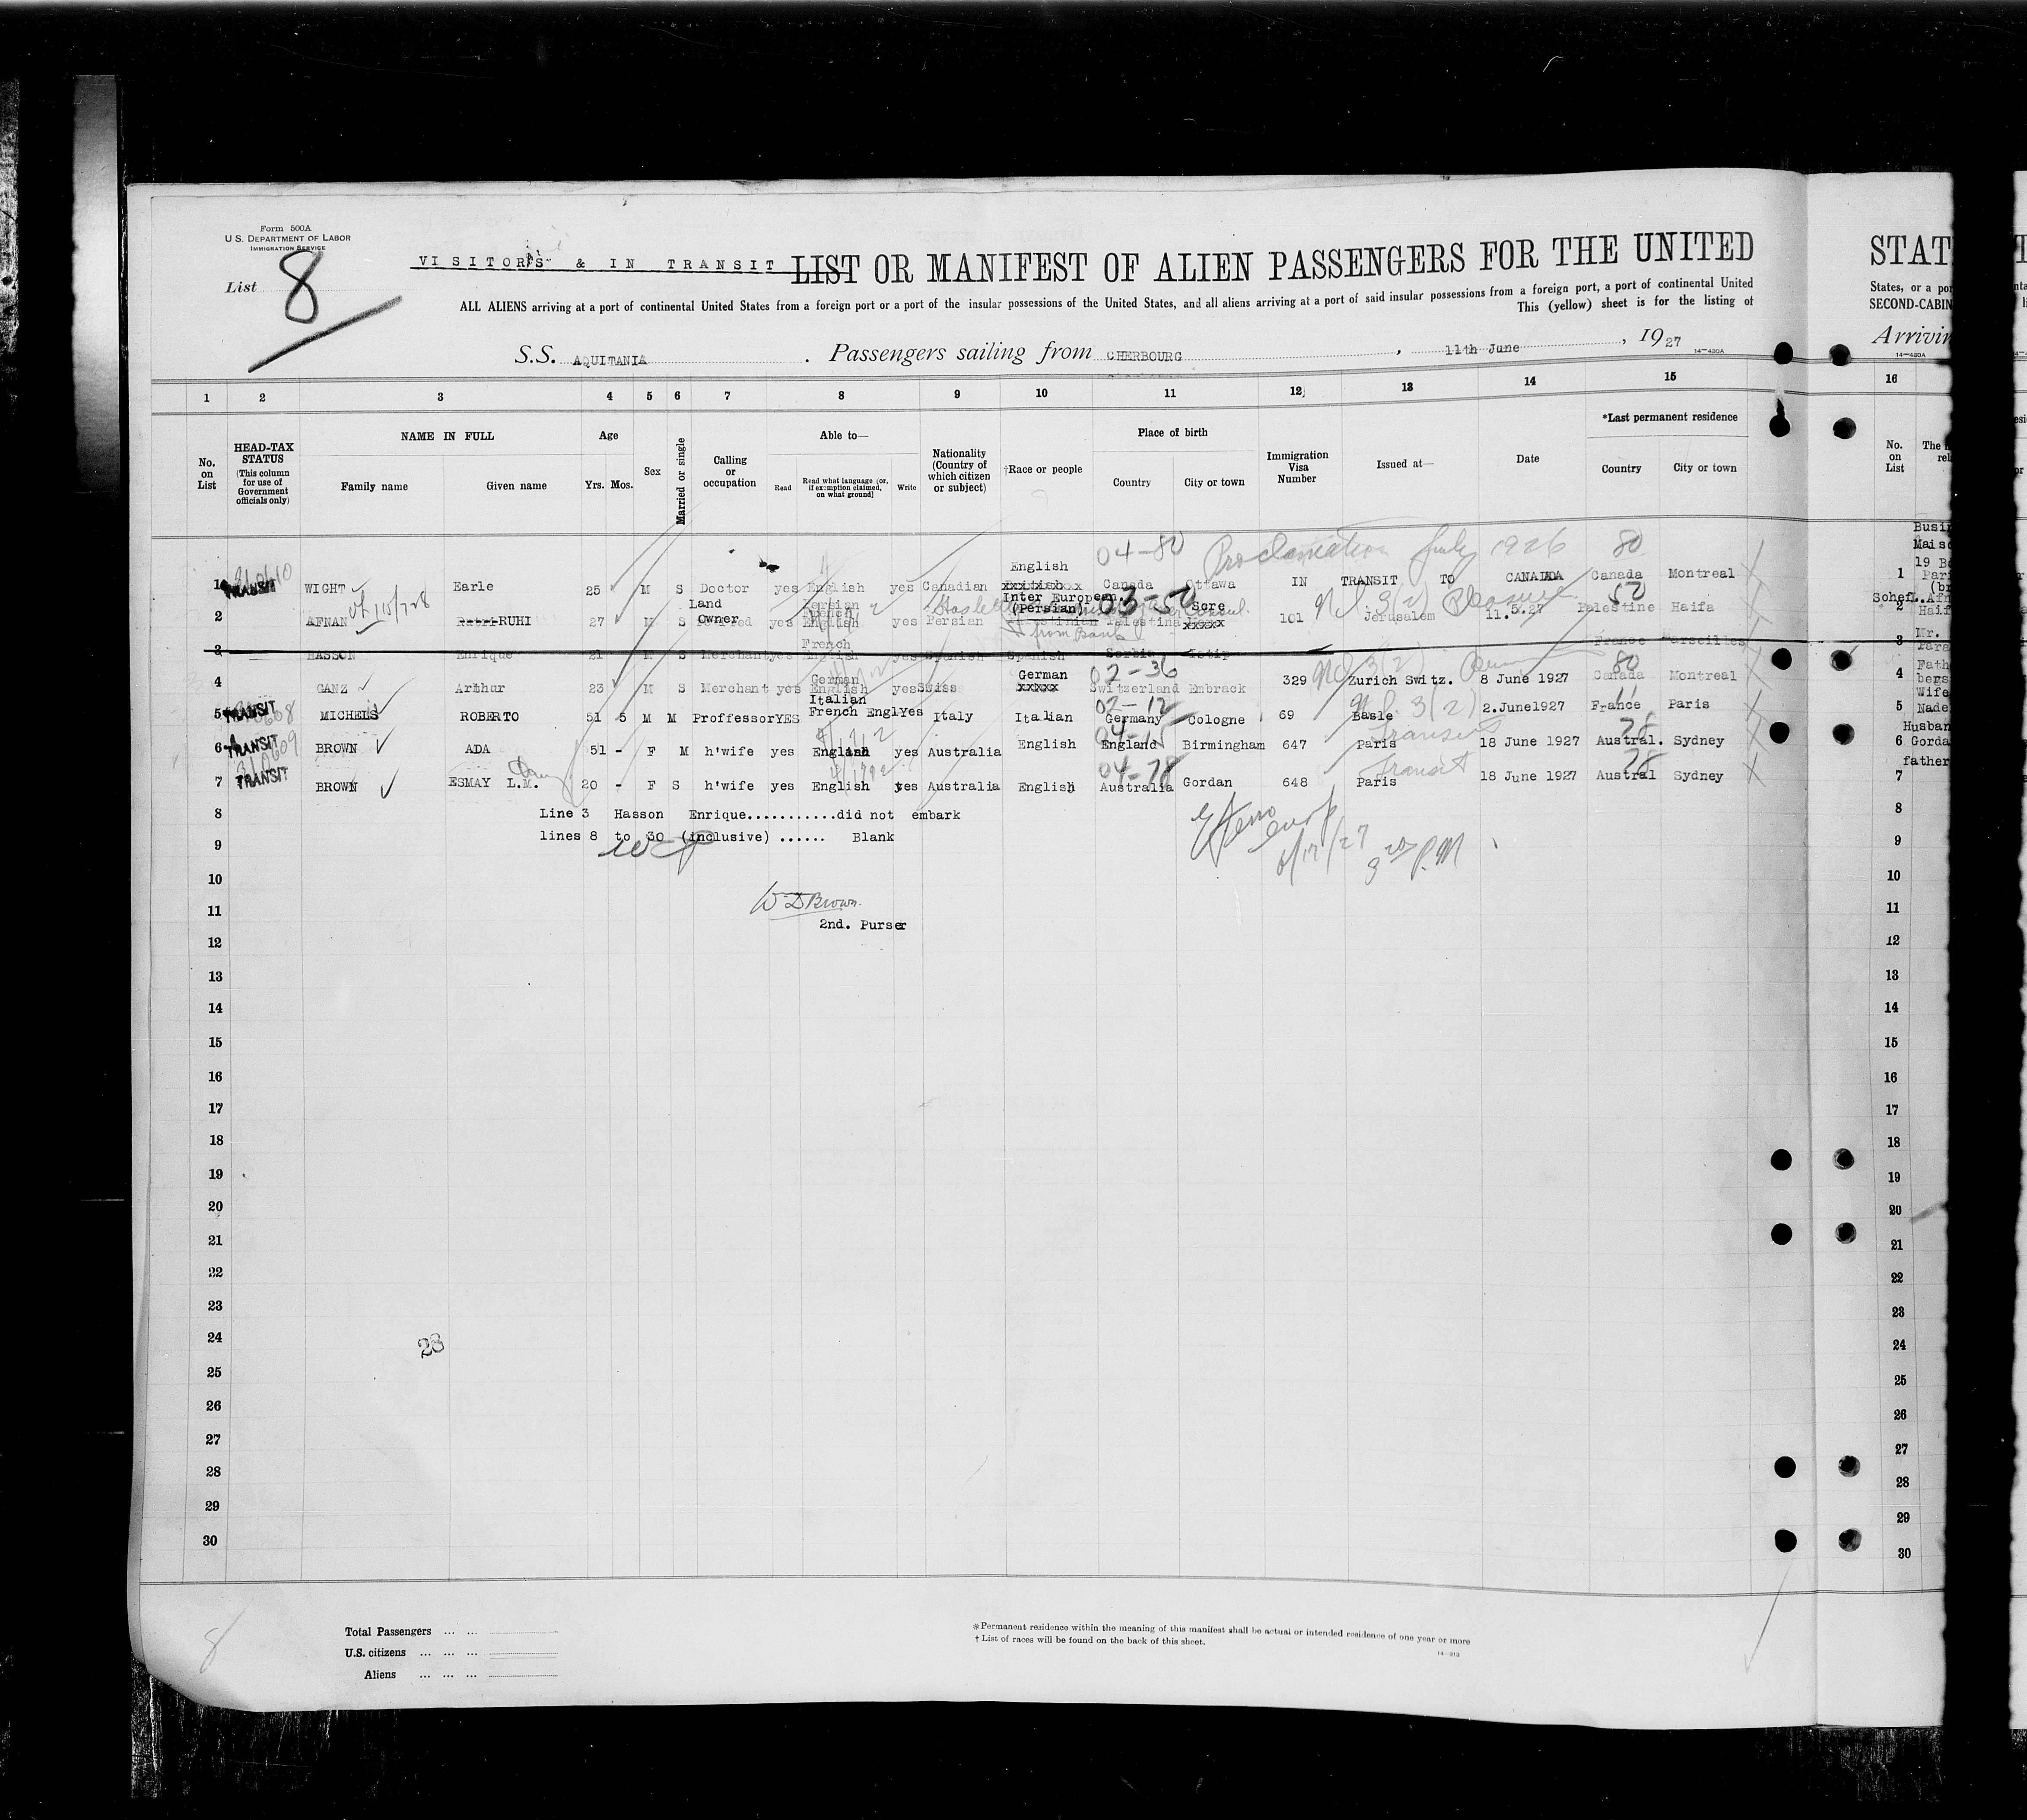 Form 500A
U.S. DEPARTMENT OF LABOR
IMMIGRATION SERVICE
List 8
VISITORS & IN TRANSIT LIST OR MANIFEST OF ALIEN PASSENGERS FOR THE UNITED
ALL ALIENS arriving at a port of continental United States from a foreign port or a port of the insular possessions of the United States, and all aliens arriving at a port of said insular possessions from a foreign port, a port of continental United
This (yellow) sheet is for the listing of
S.S. AQUITANIA . Passengers sailing from CHERBOURG , 11th June , 1927
14-430A
STAT
States, or a por
SECOND-CABIN
Arrivin
14-430A
1 2 3 4 5 6 7 8 9 10 11 12 13 14 15 16
No. on List
HEAD-TAX STATUS
(This column for use of Government officials only)
NAME IN FULL
Family name
Given name
Age
Yrs. Mos.
Sex
Married or single
Calling or occupation
Able to—
Read
Read what language (or, if exemption claimed, on what ground)
Write
Nationality (Country of which citizen or subject)
†Race or people
Place of birth
Country
City or town
Immigration Visa Number
Issued at—
Date
*Last permanent residence
Country
City or town
No. on List
04-80 Proclamation July 1926 80
1 TRANSIT WIGHT Earle 25 M S Doctor yes English yes Canadian English Canada Ottawa IN TRANSIT TO CANADA Canada Montreal
2 AFNAN RUHI 27 M S Land Owner yes Persian French English yes Persian Inter European (Persian) 03-50 101 Jerusalem 11.5.27 50 Palestine Haifa
3(2) Pleasure
from Bank
3 HASSON Enrique 21 M S Merchant yes French English yes Spanish Spanish Serbia France Marseilles
02-36 3(2) 80
4 GANZ Arthur 23 M S Merchant yes German English yes Swiss German xxxxx Switzerland Embrack 329 Zurich Switz. 8 June 1927 Canada Montreal
02-12 3(2)
5 TRANSIT MICHELS ROBERTO 51 5 M M Proffessor YES Italian French Engl Yes Italy Italian Germany Cologne 69 Basle 2.June1927 France Paris
Transit 78
6 TRANSIT BROWN ADA 51 - F M h'wife yes English yes Australia English England Birmingham 647 Paris 18 June 1927 Austral. Sydney
04-78 Transit 78
7 TRANSIT BROWN ESMAY L.M. 20 - F S h'wife yes English yes Australia English Australia Gordan 648 Paris 18 June 1927 Austral Sydney
8 Line 3 Hasson Enrique...........did not embark
lines 8 to 30 (inclusive) ...... Blank
9
6/17/27
3 20 P.M
10
W D Brown.
11
2nd. Purser
12
13
14
15
16
17
18
19
20
21
22
23
24
23
25
26
27
28
29
30
1 Busi
Mais
19 B
Par
(br
2 Haif
3 Mr.
4 Fath
bergs
Wife
5 Nade
Husban
6 Gorda
father
7
8
9
10
11
12
13
14
15
16
17
18
19
20
21
22
23
24
25
26
27
28
29
30
8
Total Passengers ... ...
U.S. citizens ... ... ...
Aliens ... ... ...
*Permanent residence within the meaning of this manifest shall be actual or intended residence of one year or more
† List of races will be found on the back of this sheet.